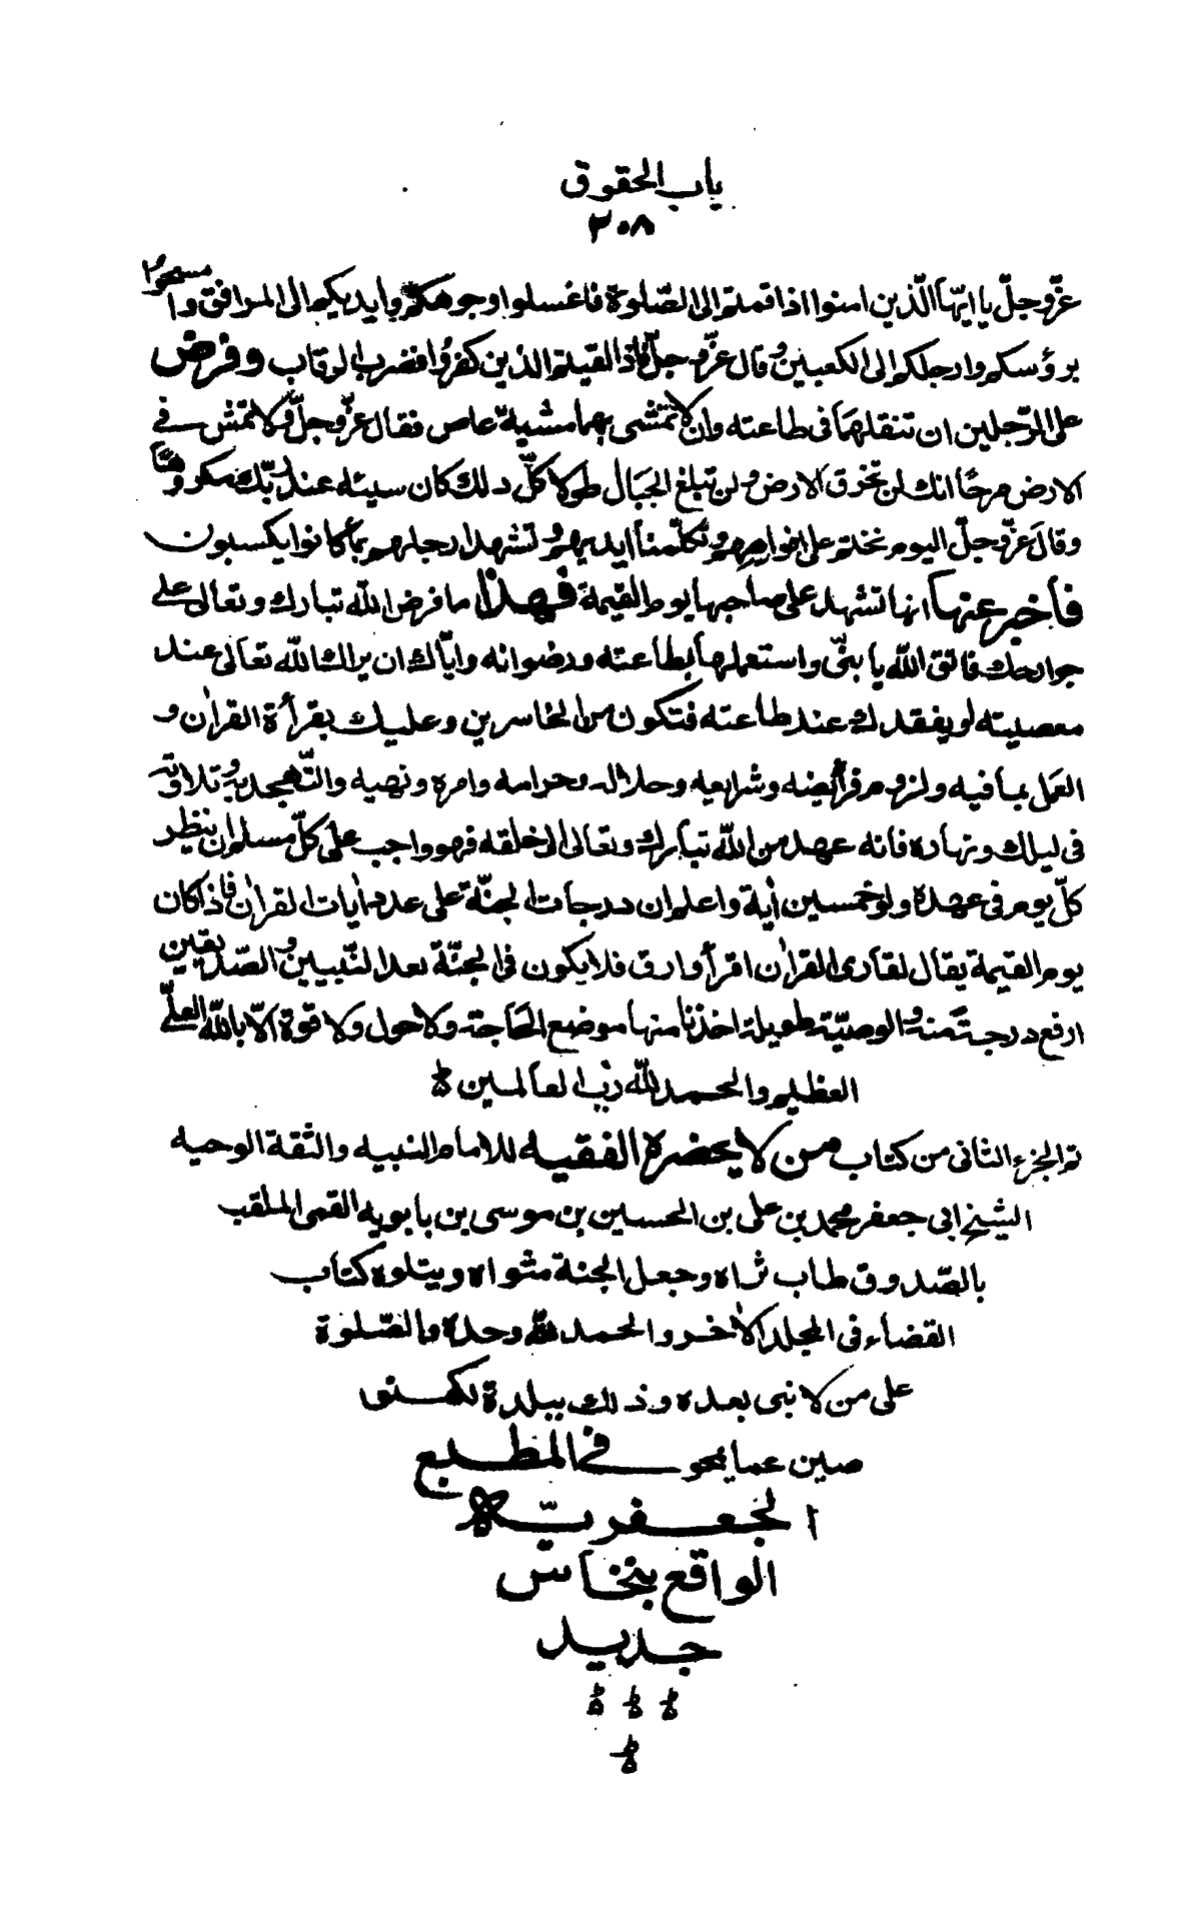 باب الحقوق
٢٠٨
عزّ وجلّ يا ايّها الّذين امنوا اذا قمتم الى الصّلوة فاغسلوا وجوهكم وايديكم الى المرافق وامسحوا
برؤسكم وارجلكم الى الكعبين وقال عزّ وجلّ فاذا لقيتم الذين كفروا فضرب الرقاب وفرض
على الرّجلين ان تنقلهما فى طاعته وان لا تمشى بهما مشية عاص فقال عزّ وجلّ ولا تمش فى
الارض مرحًا انك لن تخرق الارض ولن تبلغ الجبال طولا كلّ ذلك كان سيئه عند ربّك مكروهًا
وقال عزّ وجلّ اليوم نختم على افواههم وتكلّمنا ايديهم وتشهد ارجلهم بما كانوا يكسبون
فأخبر عنها انها تشهد على صاحبها يوم القيمة فهذا ما فرض الله تبارك وتعالى على
جوارحك فاتق الله يا بنىّ واستعملها بطاعته ورضوانه واياّك ان يراك الله تعالى عند
معصيته او يفقدك عند طاعته فتكون من الخاسرين وعليك بقرأة القرأن و
العمل بما فيه ولزوم فرائضه وشرايعه وحلاله وحرامه وامره ونهيه والتّهجد به وتلاوته
فى ليلك ونهاره فانه عهد من الله تبارك وتعالى الى خلقه فهو واجب على كلّ مسلم ان ينظر
كلّ يوم فى عهده ولو خمسين أية واعلم ان درجات الجنّة على عدد أيات القرأن فاذا كان
يوم القيمة يقال لقارى القرأن اقرأ وارق فلا يكون فى الجنّة بعد النّبيين والصّديقين
ارفع درجة منه والوصيّة طويلة اخذنا منها موضع الحاجة ولا حول ولا قوة الّا بالله العلّى
العظيم والحمد لله ربّ العالمين
تم الجزء الثانى من كتاب من لا يحضره الفقيه للامام النبيه والثقة الوجيه
الشيخ ابى جعفر محمد بن على بن الحسين بن موسى بن بابويه القمى الملقب
بالصّدوق طاب ثراه وجعل الجنة مثواه ويتلوه كتاب
القضاء فى المجلد الأخر والحمد لله وحده والصّلوة
على من لا نبى بعده وذلك ببلدة لكهنؤ
صين عما يحو فى المطبع
الجعفريّة
الواقع بنخاس
جديد